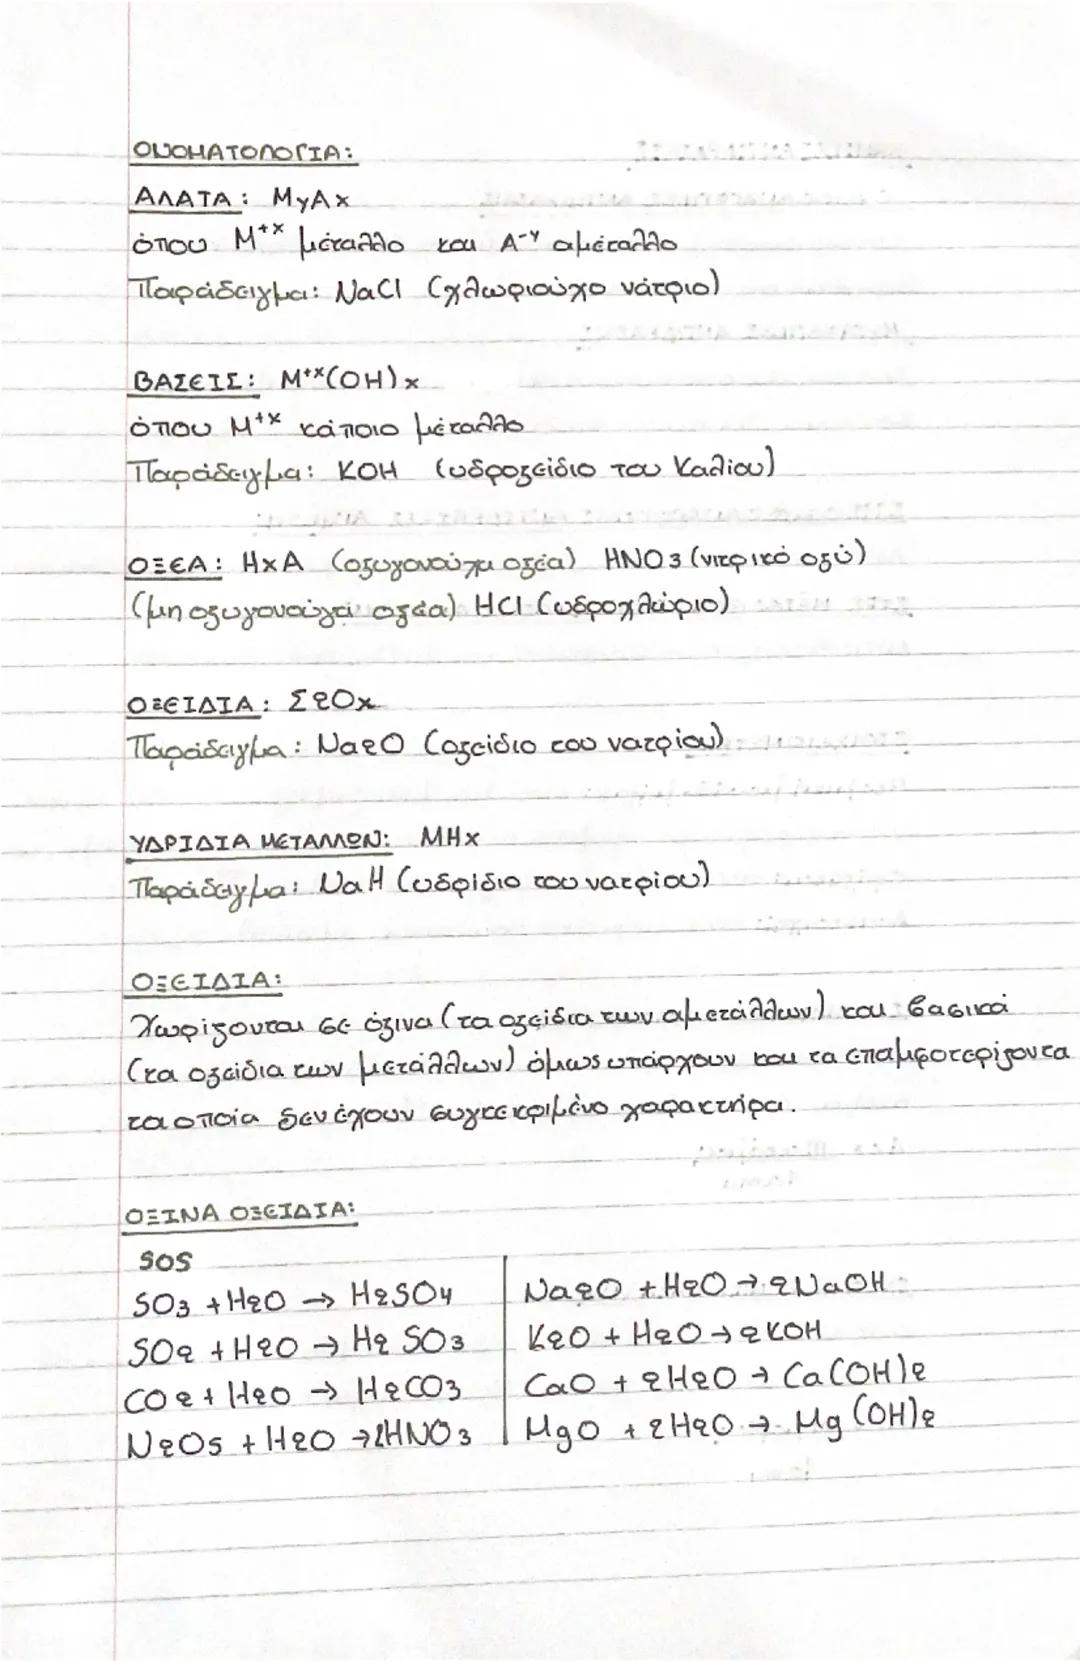 ΟΝΟΜΑΤΟΛΟΓΙΑ:
ΑΛΑΤΑ: MyAx
όπου M+x μέταλλο και A-y αμέταλλο
Παράδειγμα: NaCl (χλωριούχο νάτριο)
ΒΑΣΕΙΣ: M+x(OH)x
όπου M+x κάποιο μέταλλο
Παράδειγμα: KOH (υδροξείδιο του Καλίου)
ΟΞΕΑ: HxA (οξυγονούχα οξέα) HNO3 (νιτρικό οξύ)
(μη οξυγονούχα οξέα) HCl (υδροχλώριο)
ΟΞΕΙΔΙΑ: Σ2Οx
Παράδειγμα: Na2O (οξείδιο του νατρίου)
ΥΔΡΙΔΙΑ ΜΕΤΑΛΛΩΝ: MHx
Παράδειγμα: NaH (υδρίδιο του νατρίου)
ΟΞΕΙΔΙΑ:
Χωρίζονται σε όξινα (τα οξείδια των αμετάλλων) και βασικά
(τα οξείδια των μετάλλων) όμως υπάρχουν και τα επαμφοτερίζοντα
τα οποία δεν έχουν συγκεκριμένο χαρακτήρα.
ΟΞΙΝΑ ΟΞΕΙΔΙΑ:
SOS
SO3 + H2O → H2SO4
SO2 + H2O → H2SO3
CO2 + H2O → H2CO3
N2O5 + H2O → 2HNO3
Na2O + H2O → 2NaOH
K2O + H2O → 2KOH
CaO + 2H2O → Ca(OH)2
MgO + 2H2O → Mg(OH)2